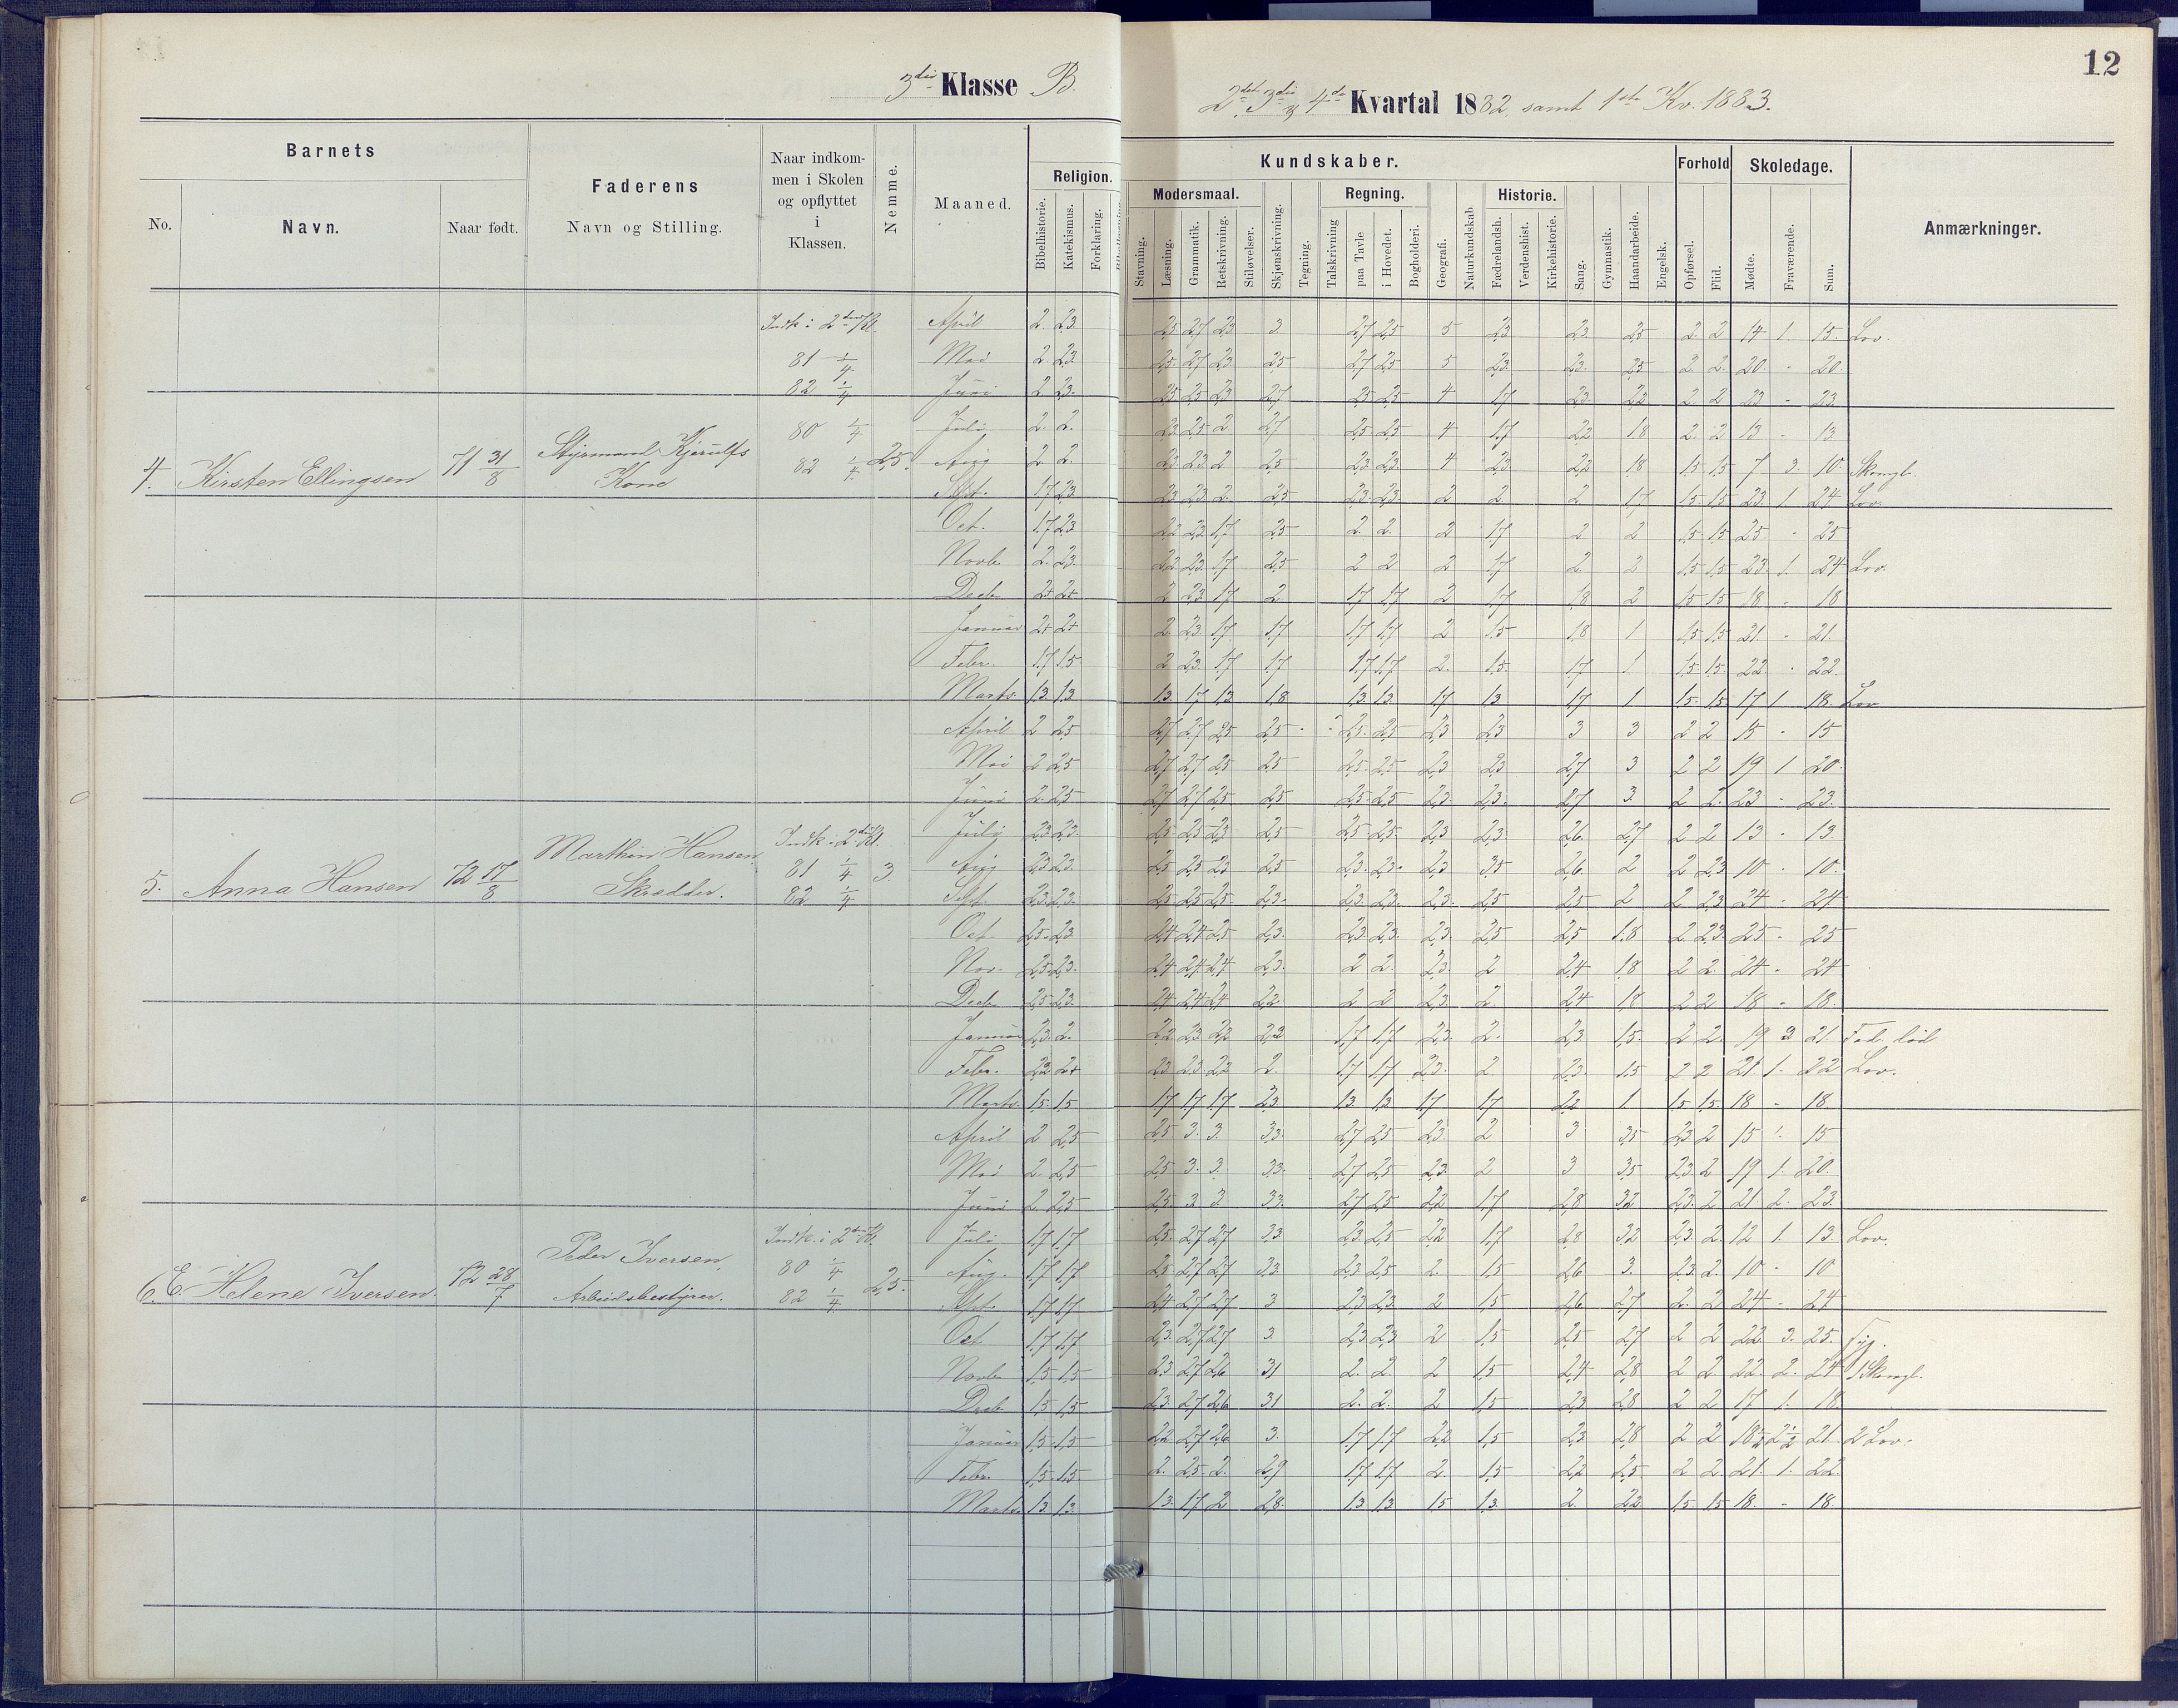 12
3die Klasse B.
2det 3die & 4de Kvartal 1882, samt 1ste Kv. 1883.
Barnets
Faderens
Naar indkommen i Skolen og opflyttet i Klassen.
Nemme.
Maaned.
Religion.
Kundskaber.
Forhold
Skoledage.
Anmærkninger.
No.
Navn.
Naar født.
Navn og Stilling.
Bibelhistorie.
Katekismus.
Forklaring.
Modersmaal.
Stavning.
Læsning.
Grammatik.
Retskrivning.
Stiløvelser.
Skjønskrivning.
Tegning.
Regning.
Talskrivning
paa Tavle
i Hovedet.
Bogholderi.
Geografi.
Naturkundskab
Historie.
Fædrelandsh.
Verdenshist.
Kirkehistorie.
Sang.
Gymnastik.
Haandarbeide.
Engelsk.
Opførsel.
Flid.
Mødte.
Fraværende.
Sum.
4. Kirsten Ellingsen 71 31/8 Styrmand Kjerulfs Kone
Indk. i 2den Kl.
81 1/4
82 1/4
80 1/4
82 1/4 2,5.
April 2. 2,3 2,5 2,7 2,3 3. 2,7 2,5 5 2,3 2,3. 2,5 2. 2 14 1. 15. Lov.
Mai 2. 2,3 2,5 2,7 2,3 2,5 2,7 2,5 5 2,3. 2,3. 2,5 2 2. 20. - 20
Juni 2 2,3. 2,5 2,5 2,3 2,7 2,5 2,5 4 1,7 2,3. 2,2 2. 2 23 - 23.
Juli 2. 2. 2,3 2,5 2 2,7 2,5 2,5 4 1,7 2,2 1,8 2. 2 13 - 13.
Aug 2. 2. 2,3. 2,3 2 2,5 2,3. 2,3. 4 2,3. 2,2 1,8 1,5 1,5 7 3. 10.
Sept. 1,7 2,3. 2,3 2,3 2. 2,5 2,3. 2,3. 2 2. 2 1,7 1,5 1,5 23. 1. 24 Lov.
Oct. 1,7 2,3 2,2 2,3 1,7 2,5 2. 2. 2 1,7 2 2 1,5 1,5 25 - 25
Novb. 2. 2,3. 2,2 2,3. 1,7 2,5 2 2 2 1,7 2. 2 1,5 1,5 23. 1. 24 Lov.
Decb. 2+ 2+ 2 2,3 1,7 2 1,7 1,7 2 1,7 1,8 2 1,5 1,5 18 - 18
Januar 2+ 2+ 2 2,3 1,7 1,7 1,7 1,7 2 1,5 1,8 1 1,5 1,5 21 - 21.
Febr. 1,7 1,5 2 2,3. 1,7 1,7 1,7 1,7 2. 1,5. 1,7 1. 1,5 1,5 22. - 22.
Marts. 1,3. 1,3. 1,3. 1,7 1,3 1,8 1,3. 1,3. 1,7 1,3. 1,7 1 1,5 1,5 17 1 18. Lov
5. Anna Hansen 72 17/8 Marthin Hansen Skrædder.
Indk. i 2den Kl.
81 1/4 3.
82 1/4
April 2 2,5 2,7 2,7 2,5 2,5 2,5 2,5 2,3 2,3 3 3 2 2 15 - 15
Mai 2 2,5 2,7 2,7 2,5 2,5 2,5 2,5 2,3 2,3 2,7 3 2 2 19 1 20.
Juni 2. 2,5 2,7 2,7 2,5 2,5 2,5 2,5 2,3. 2,3. 2,7 3. 2 2. 23 - 23.
Juli 2,3 2,3. 2,5 2,5 2,3 2,5 2,5 2,5 2,3 2,3. 2,6 2,7 2 2 13 - 13.
Aug 2,3 2,3. 2,5 2,5 2,3 2,5 2,3. 2,3. 2,3 3,5 2,6. 2 2 2,3 10 - 10.
Sept. 2,3. 2,3. 2,5 2,5 2,5 2,3. 2,3. 2,3. 2,3. 2,5 2,5 2 2 2,3 24 - 24
Oct. 2,5 2,3 2,4 2,4 2,5 2,3. 2,3. 2,3. 2,3. 2,5 2,5 1,8 2. 2,3. 25 - 25
Nov. 2,5 2,3. 2,4 2,4 2,4 2,3. 2 2. 2,3. 2 2,4 1,8 2 2. 24 - 24
Decb 2,5 2,3. 2,4 2,4 2,4 2,2 2 2 2,3 2. 2,4 1,8 2 2 18 - 18.
Januar 2,3. 2. 2,2 2,3 2,2 2,2 1,7 1,7 2,3. 2. 2,3 1,5. 2 2. 19 2 21.
Febr. 2,2 2+ 2,3 2,3 2,2 2. 1,7 1,7 2,3. 2 2,3. 1,5 2 2 21 1. 22 Lov.
Marts. 1,5 1,5 1,7 1,7 1,7 2,3 1,3. 1,3 1,7 1,7 2,2 1. 1,5 1,5 18 - 18.
6. E. Helene Iversen. 72 28/7 Peder Iversen, Arbeidsbestyrer.
Indk. i 2den Kl.
80 1/4 2,5.
82 1/4
April 2 2,5 2,5 3. 3. 3,3. 2,7 2,5 2,3. 2 3 3,5 2,3. 2 15 - 15
Mai 2. 2,5 2,5 3. 3. 3,3. 2,7 2,5 2,3. 2 3 3,5 2,3 2 19 1. 20.
Juni 2. 2,5 2,5 3. 3. 3,3. 2,7 2,5 2,2 1,7 2,8 3,2 2,3. 2 21 2. 23.
Juli 1,7 1,7 2,5 2,7 2,7 3,3 2,3. 2,5 2,2 1,7 2,8 3,2 2,3. 2. 12 1. 13. Lov.
Aug. 1,7 1,7 2,5 2,7 2,7 3,3 2,3 2,5 2. 1,5 2,6 3. 2,3. 2. 10 - 10
Sept. 1,7 1,7 2,4 2,7 2,7 3 2,3 2,3. 2 1,5 2,6 2,7 2. 2 24 - 24
Oct 1,7 1,7 2,3. 2,7 2,7 3. 2,3 2,3 2 1,5 2,5 2,7 2 2 22. 3. 25.
Novb 1,5 1,5 2,3 2,7 2,6 3,1 2. 2. 2 1,5 2,4 2,8 2 2. 22. 2. 24
Decb 1,5 1,5 2,3. 2,7 2,6 3,1 2. 2. 2 1,5 2,3 2,8 2 2 17 1. 18.
Januar 1,5 1,5 2,2 2,7 2,6 3. 1,7 1,7 2,2 1,5 2,3 2,8 2 2 18 1/2 2 1/2 21 2 Lov.
Febr. 1,5 1,5 2. 2,5 2. 2,9 1,7 1,7 2. 1,5 2,2 2,5 2 2. 21. 1. 22.
Marts. 1,3 1,3. 1,3. 1,7 2 2,8 1,3 1,3 1,5 1,3. 2. 2,2 1,5 1,5 18. - 18.